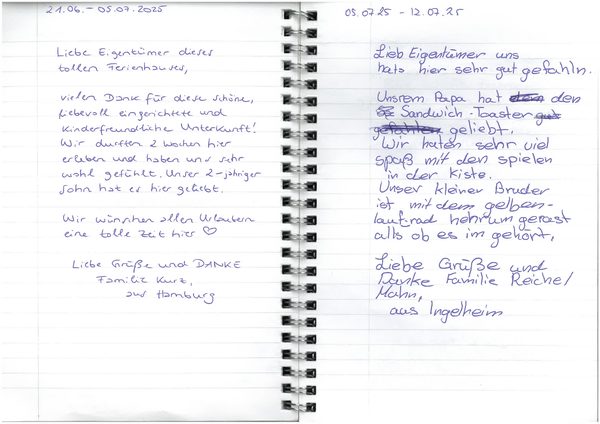 21.06. – 05.07.2025
Liebe Eigentümer dieses
tollen Ferienhauses,
vielen Dank für diese schöne,
liebevoll eingerichtete und
kinderfreundliche Unterkunft!
Wir durften 2 Wochen hier
erleben und haben uns sehr
wohl gefühlt. Unser 2-jähriger
Sohn hat es hier geliebt.
Wir wünschen allen Urlaubern
eine tolle Zeit hier ♡
Liebe Grüße und DANKE
Familie Kurz,
aus Hamburg
05.07.25 – 12.07.25
Lieb Eigentümer uns
hats hier sehr gut gefahln.
Unsrem Papa hat den
Sandwich-Toaster
geliebt.
Wir haten sehr viel
spaß mit den spielen
in der kiste.
Unser kleiner Bruder
ist mit dem gelben-
laufrad hehrum gerast
alls ob es im gehört,
Liebe Grüße und
Danke Familie Reichel/
Mahn,
aus Ingelheim